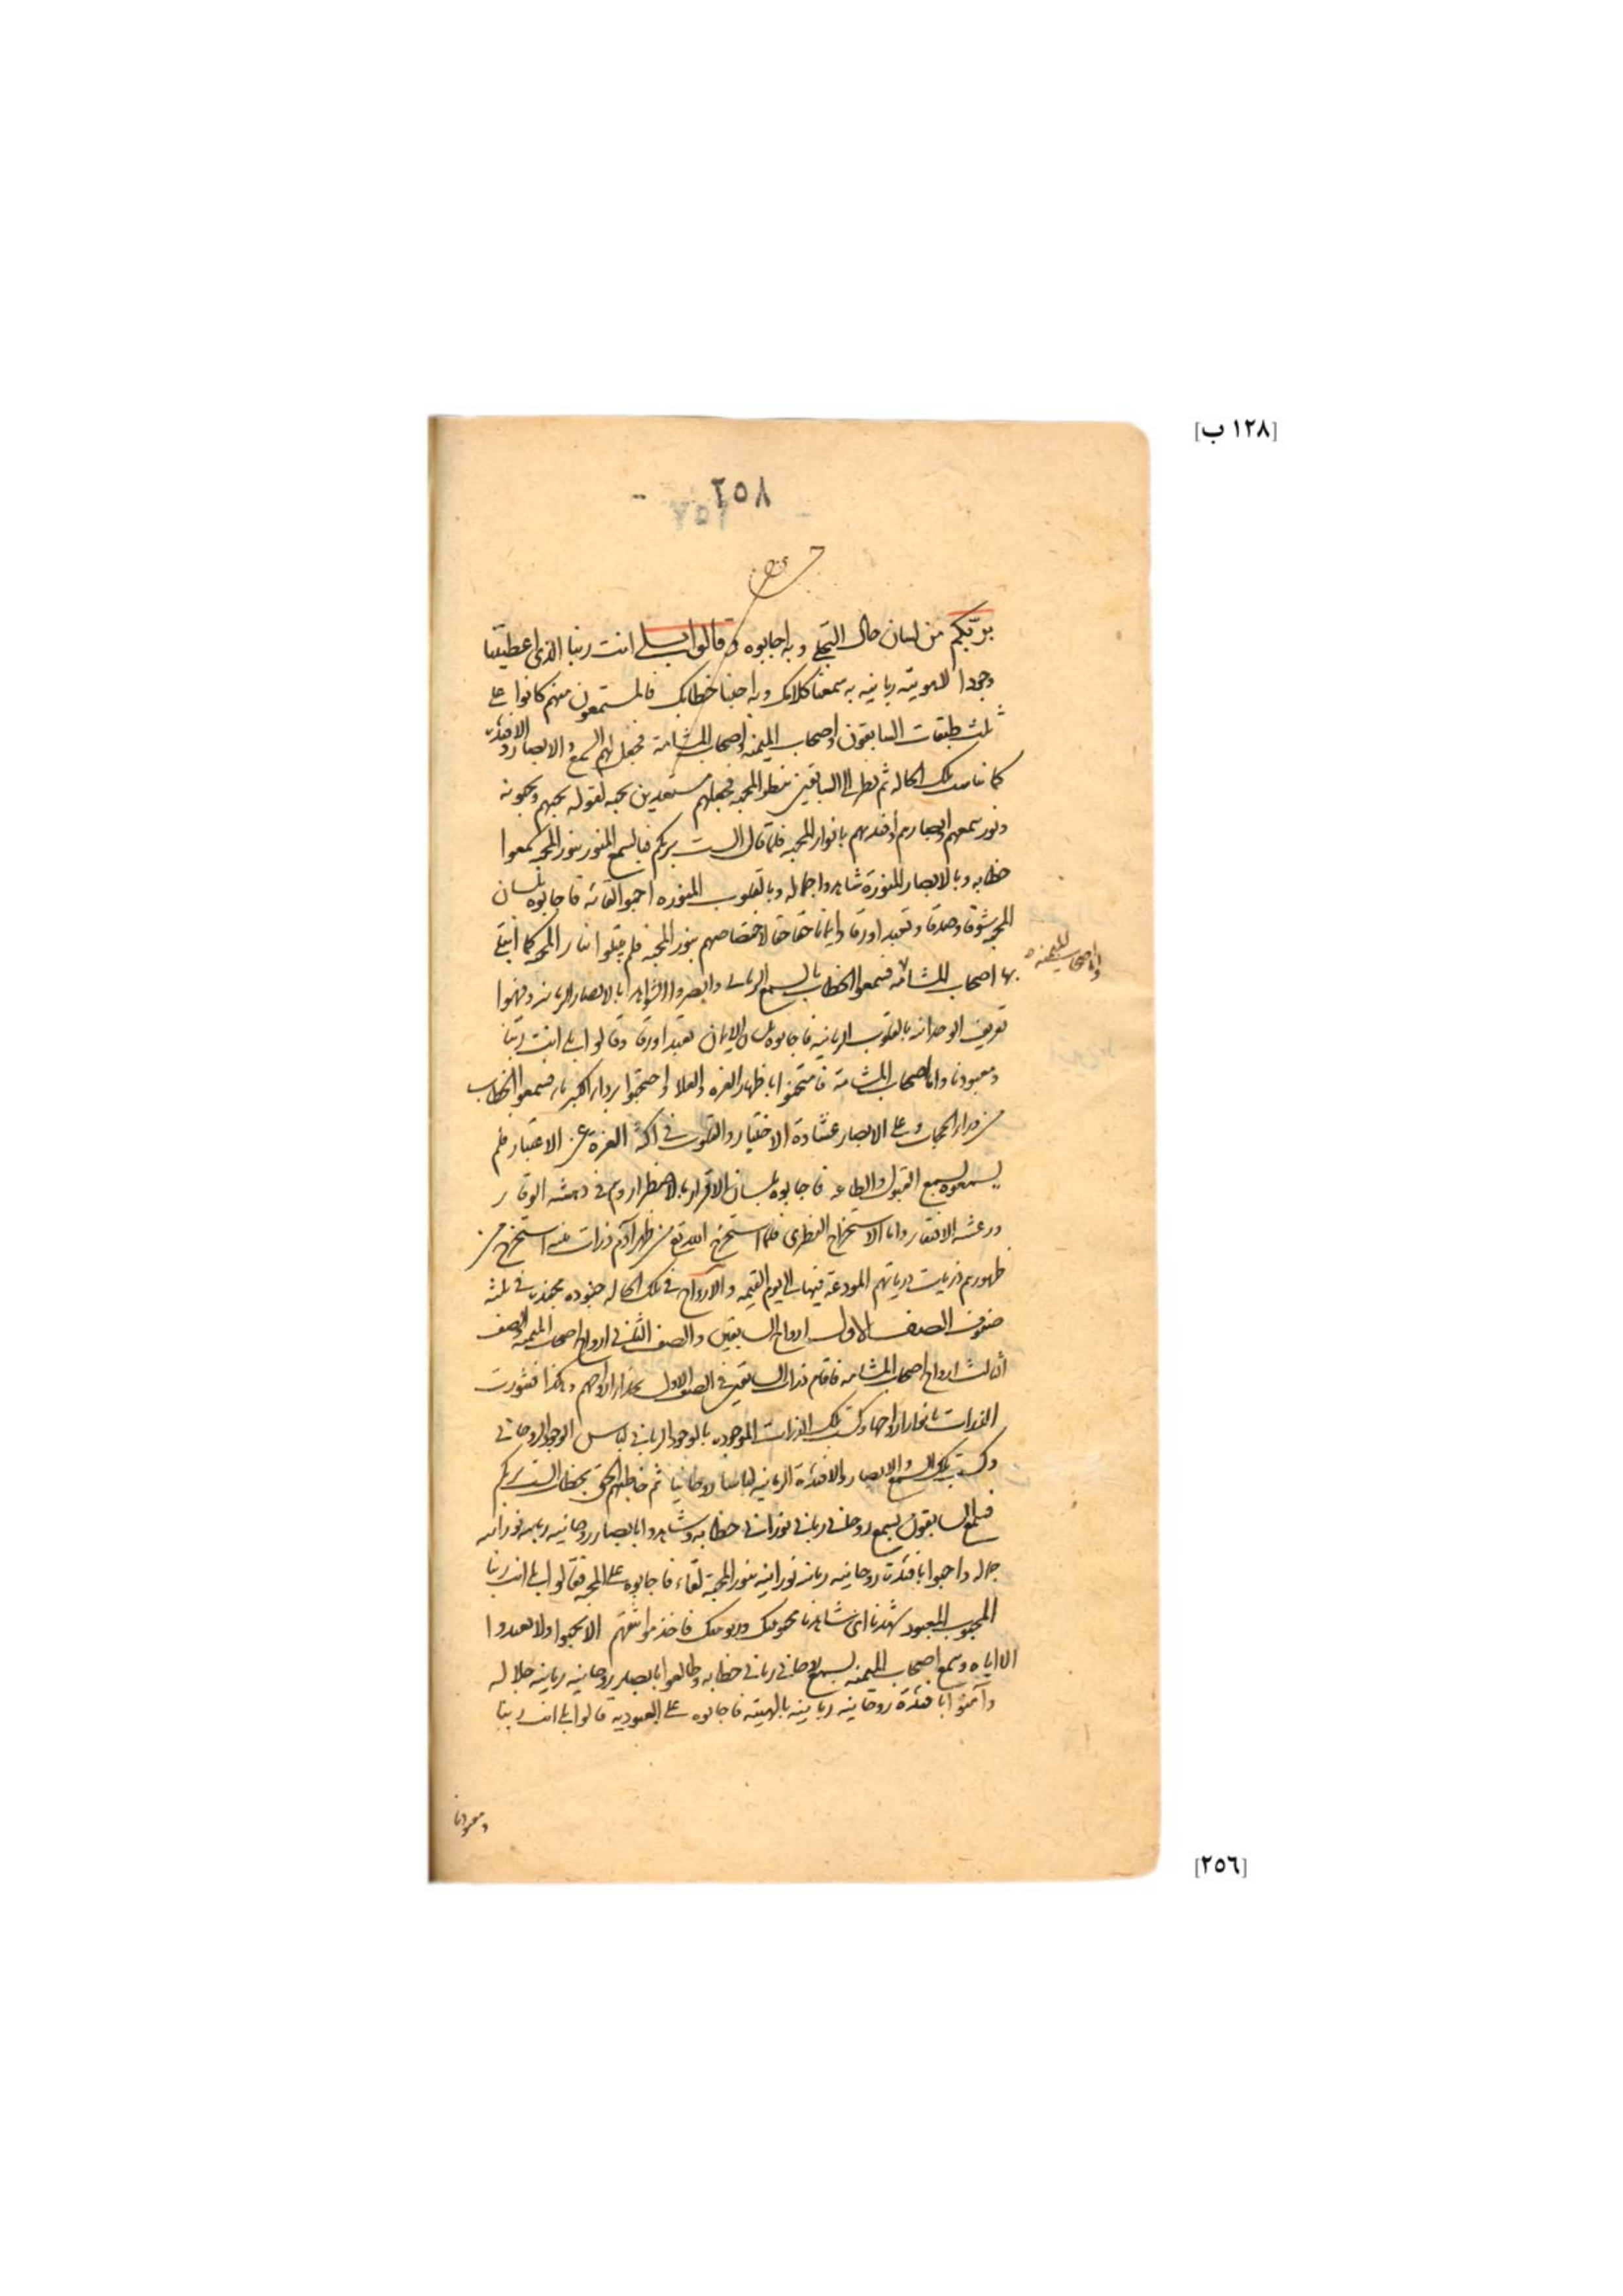 [١٢٨ ب]
٢٥٨
بربكم من لسان حال التجلي وبه اجابوه و قالوا بلى انت ربنا الذي اعطيتنا
وجودا للهويته ربانيه به سمعنا كلامك وبه اجبنا خطابك فالمستمعون منهم كانوا على
ثلث طبقات السابقون واصحاب الميمنه واصحاب المشامة فجعل لهم السمع والابصار والافئدة
كما تلك الحاله ثم نظر الى السابقين بنظر المحبه فجعلهم مستعدين بحبه لقوله يحبهم ويحبونه
ونور سمعهم وابصارهم وافئدتهم بانوار المحبه فلما قال الست بربكم فبالسمع المنور بنور المحبه سمعوا
خطابه وبالابصار المنورة شاهدوا جماله وبالقلوب المنوره احبوا لقائه فاجابوه بلسان
المحبه شوقا وصدقا وتعبدا ورقا وايمانا حقا لاختصاصهم بنور المحبه فلم يبتلوا المحبه كما ابتلى
واما اصحاب الميمنه
بها اصحاب المشامه فسمعوا الخطاب بالسمع الرباني وابصروا الشواهد بالابصار الربانيه وفهموا
تعريف الوحدانيه بالقلوب الربانيه فاجابوه بلسان الايمان تعبدا ورقا وقالوا بلى انت ربنا
ومعبودنا واما اصحاب المشامة فامتحنوا باظهار العزه والعلا واحتجبوا برداء الكبرياء فسمعوا الخطاب
من وراء الحجاب وعلى الابصار غشاوة الاختبار والقلوب في اكنة العزة عن الاعتبار فلم
يسمعوه بسمع القبول والطاعه فاجابوه بلسان الاقرار بالاضطرار وهم في دهشه الوقار
ورعشه الافتقار واما الاستخراج الفطرى فلما استخرج الله تع من ظهر ادم ذرات بنيه استخرج من
ظهورهم ذريات ذرياتهم المودعة فيها الى يوم القيمه والارواح في تلك الحاله جنوده مجندة في ثلثه
صفوف الصف الاول ارواح السابقين والصف الثاني ارواح اصحاب الميمنه والصف
الثالث ارواح اصحاب المشامه فاقام ذرات السابقين في الصف الاول بحذاء ارواحهم وهكذا فنورت
الذرات بانوار ارواحها وكست تلك الذرات الموجوده بالوجود الرباني لباس الوجود الروحاني
وكست تلك السمع والابصار والافئدة الربانيه لباسا روحانيا ثم خاطبهم الحق بخطاب الست بربكم
فسمع السابقون بسمع روحاني رباني نوراني خطابه وشاهدوا بابصار روحانيه ربانيه نورانيه
جماله واحبوا بافئدة روحانيه ربانيه نورانيه بنور المحبة لقاءه فاجابوه على المحبه فقالوا بلى انت ربنا
المحبوب المعبود شهدنا اى شاهدنا محبوبيتك وربوبيتك فاخذ مواثقهم الا يحبوا ولا يعبدوا
الا اياه وسمع اصحاب الميمنه بسمع روحاني رباني خطابه وطالعوا بابصار روحانيه ربانيه جلاله
وآمنوا بافئدة روحانيه ربانيه بالهيته فاجابوه على العبوديه قالوا بلى انت ربنا
ومعبودنا
[٢٥٦]